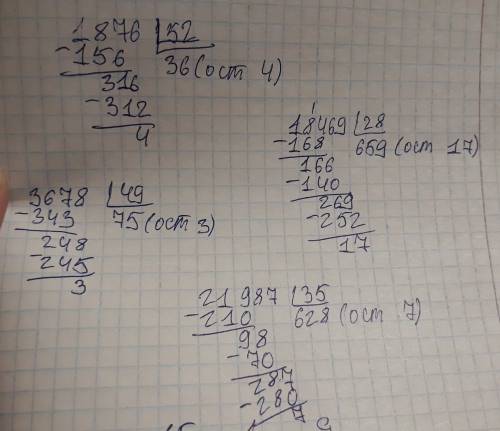 1876 52
-156 36(ост 4)
316
-312
4
18469 28
-168 659(ост 17)
166
-140
269
-252
17
3678 49
-343 75(ост 3)
248
-245
3
21987 35
-210 628(ост 7)
98
-70
287
-280
7